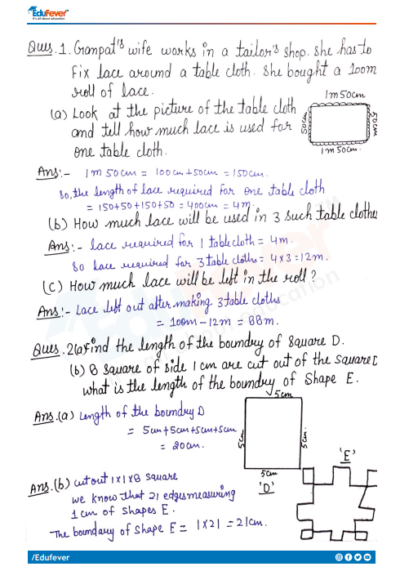 EduFever
Ques.1. Ganpat's wife works in a tailor's shop. She has to
Fix lace around a table cloth. She bought a 100m
roll of lace.
1m50cm
(a) Look at the picture of the table cloth
and tell how much lace is used for
one table cloth.
50cm
50cm
1m 50cm.
Ans:- 1m 50cm = 100cm+50cm = 150cm.
So, the length of lace required for one table cloth
= 150+50+150+50 = 400cm = 4m.
(b) How much lace will be used in 3 such table clothes
Ans:- lace required for 1 tablecloth = 4m.
So lace required for 3 tablecloths = 4x3 = 12m.
(c) How much lace will be left in the roll?
Ans:- Lace left out after making 3 table cloths
= 100m-12m = 88m.
Ques. 2(a) Find the length of the boundry of Square D.
(b) 8 square of side 1cm are cut out of the square D
what is the length of the boundry of Shape E.
5cm
Ans.(a) Length of the boundry D
= 5cm+5cm+5cm+5cm
= 20cm.
5cm
5cm.
5cm
'D'
'E'
Ans.(b) cut out 1x1x8 square
we know that 21 edges measuring
1cm of shapes E.
The boundary of Shape E = 1x21 = 21cm.
/Edufever